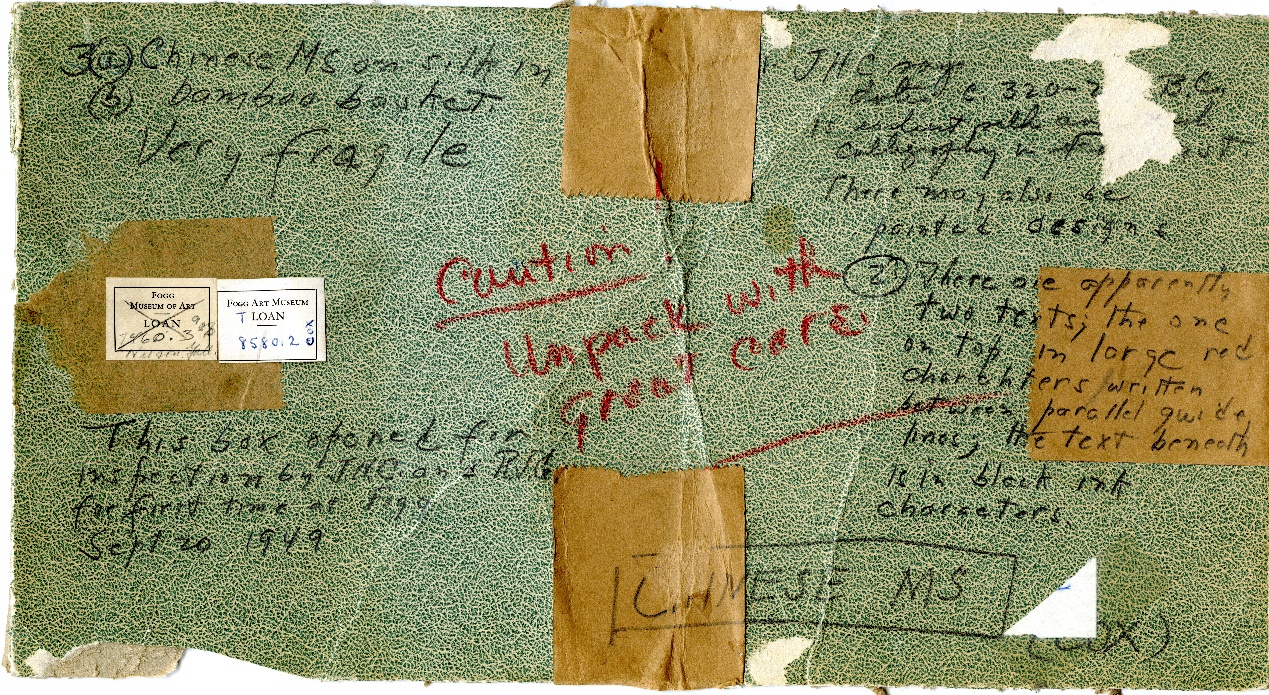 3(a) Chinese MS on silk in
(b) bamboo basket
Very fragile
Caution.
Unpack with
great care.
FOGG
MUSEUM OF ART
LOAN
1960.3
FOGG ART MUSEUM
T LOAN
8580.2 COX
This box opened for
inspection by JHC on &
for first time at Fogg
Sept 20 1949
JHC may
date c 320- B.C.
calligraphy in
There may also be
painted designs
(2) There are apparently
two texts; the one
on top in large red
characters written
between parallel guide
lines; the text beneath
is in black ink
characters.
CHINESE MS
(COX)